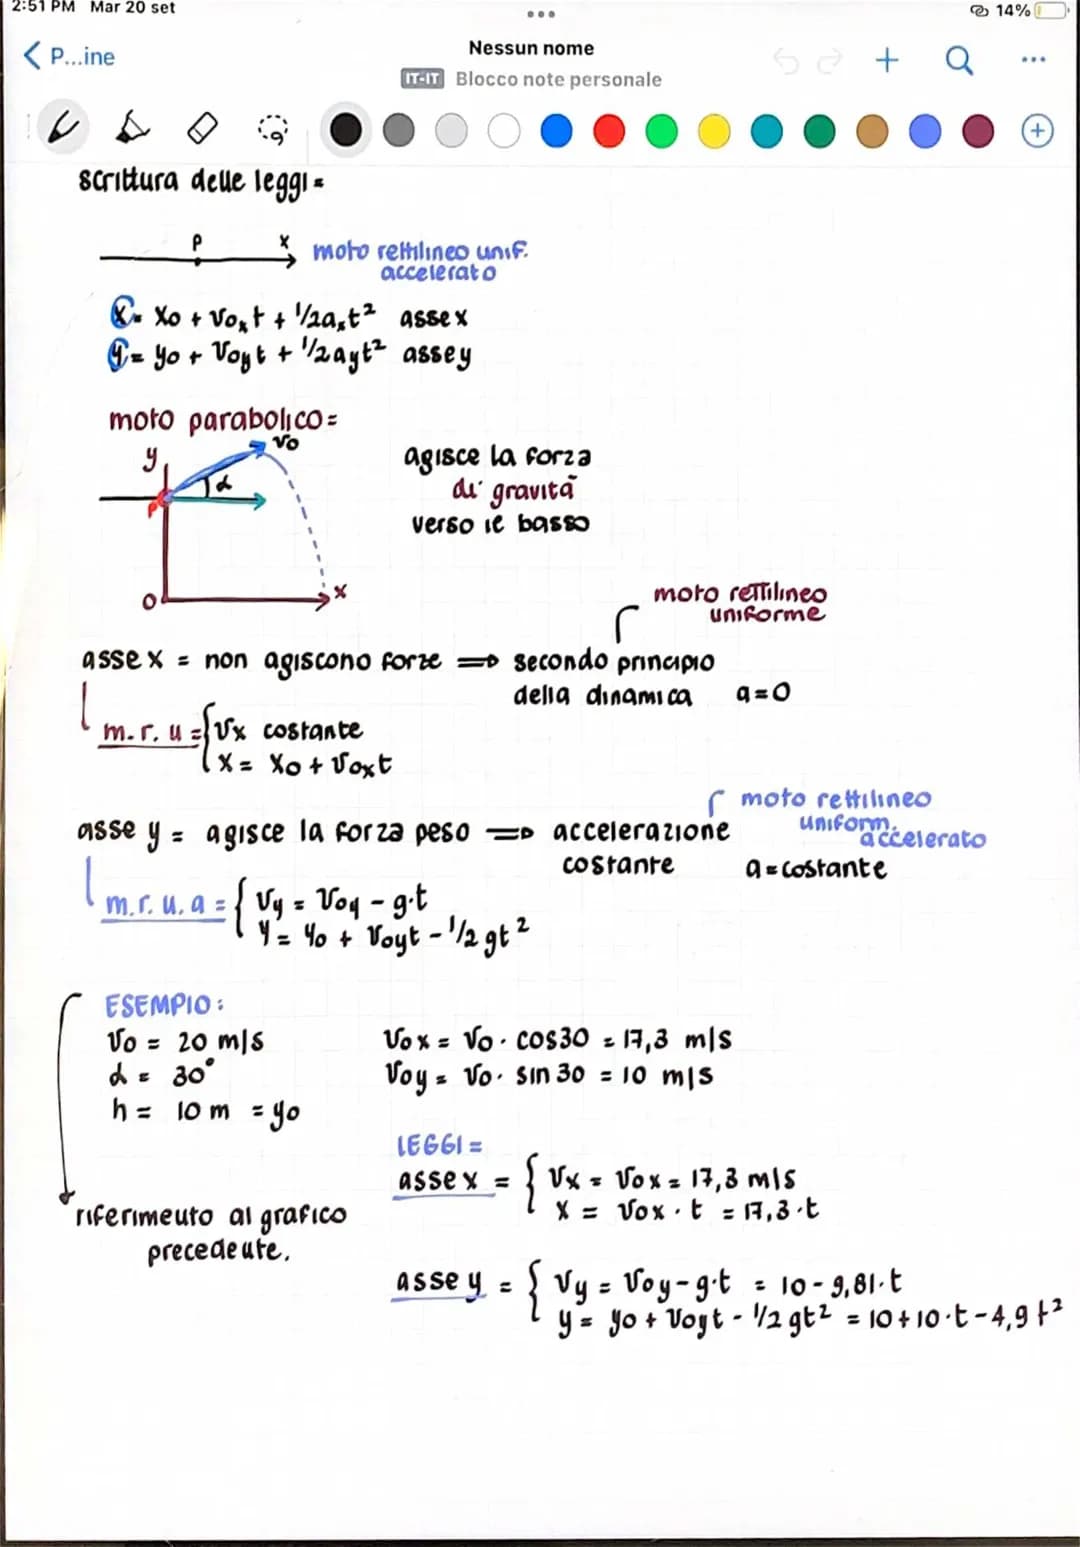 2:51 PM Mar 20 set
14%
P...ine
Nessun nome
IT-IT Blocco note personale
scrittura delle leggi =
P x
moto rettilineo unif.
accelerato
x = x₀ + v₀ₓt + 1/2aₓt² asse x
y = y₀ + v₀yt + 1/2ayt² asse y
moto parabolico =
y v₀
α
P
O x
agisce la forza
di gravità
verso il basso
moto rettilineo
uniforme
asse x = non agiscono forze ⇒ secondo principio
della dinamica a=0
m.r.u = { vx costante
x = x₀ + v₀xt
moto rettilineo
uniform.
accelerato
asse y = agisce la forza peso ⇒ accelerazione
costante a=costante
m.r.u.a = { vy = v₀y - g·t
y = y₀ + v₀yt - 1/2 gt²
ESEMPIO:
v₀ = 20 m/s
α = 30°
h = 10 m = y₀
v₀x = v₀ · cos30 = 17,3 m/s
v₀y = v₀ · sin 30 = 10 m/s
LEGGI =
asse x = { vx = v₀x = 17,3 m/s
x = v₀x · t = 17,3·t
riferimento al grafico
precedente.
asse y = { vy = v₀y - g·t = 10 - 9,81·t
y = y₀ + v₀yt - 1/2 gt² = 10+10·t-4,9t²